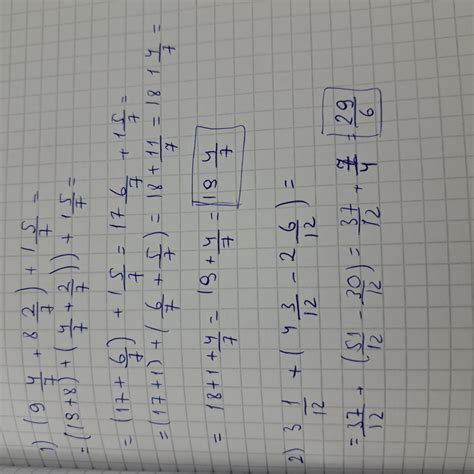 1) (9 4/7 + 8 2/7) + 1 5/7 =
= ((9+8) + (4/7 + 2/7)) + 1 5/7 =
= (17 + 6/7) + 1 5/7 = 17 6/7 + 1 5/7 =
= (17+1) + (6/7 + 5/7) = 18 + 11/7 = 18 1 4/7 =
= 18 + 1 + 4/7 = 19 + 4/7 = 19 4/7
2) 3 1/12 + (4 3/12 - 2 6/12) =
= 37/12 + (51/12 - 30/12) = 37/12 + 7/4 = 29/6